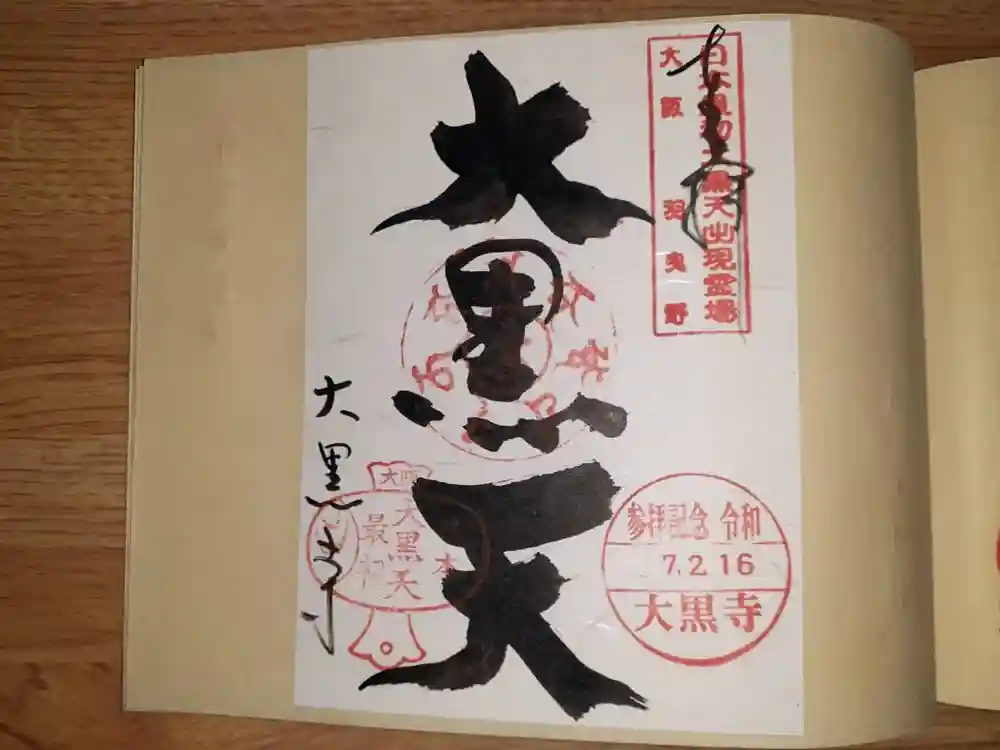 奉拝
日本最初大黒天出現霊場
大阪羽曳野
大黒天
大阪
日本
最初
大黒天
参拝記念 令和
7.2.16
大黒寺
大黒寺